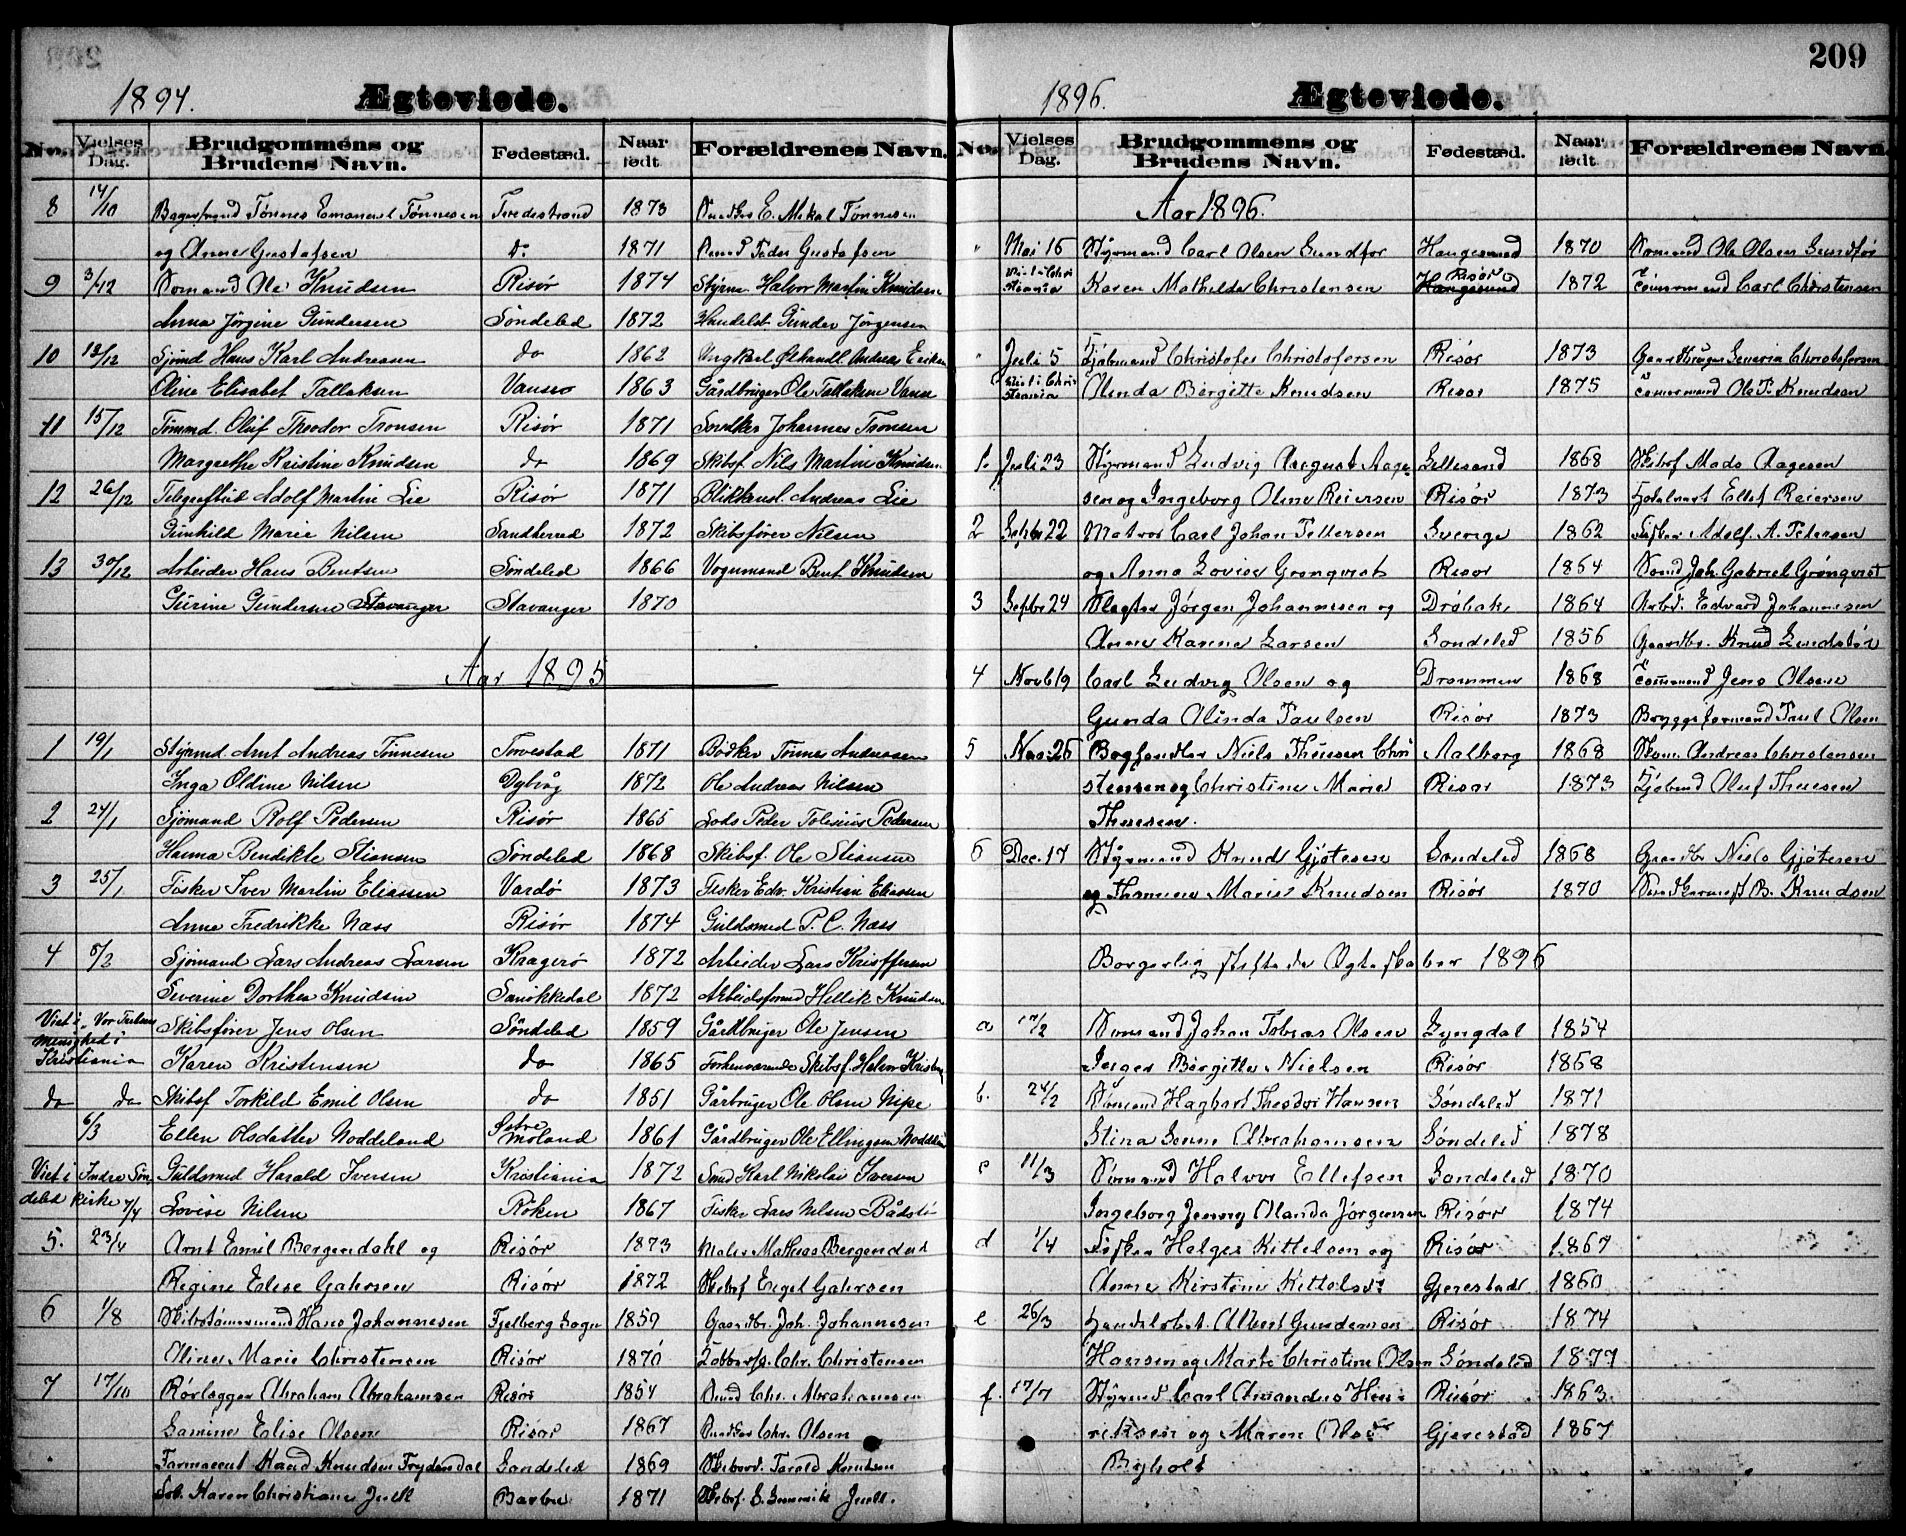 1894.
Ægteviede.
No. Vielses Dag. Brudgommens og Brudens Navn. Fødested. Naar født Forældrenes Navn.
8 14/10 Tønnes Emanuel Tønnesen Tvedestrand 1873 E. Mikal Tønnesen
og Anne Gustafsen do 1871 Peder Gustafsen
9 3/12 Sømand Ole Knudsen Risør 1874 Styrm. Halvor Martin Knudsen
Anna Jørgine Gundersen Søndeled 1872 Gunder Jørgensen
10 12/12 Sjømd Hans Karl Andreasen do 1862 Ungkarl Andreas Eriksen
Oline Elisabet Tallaksen Vanse 1863 Gårdbruger Ole Tallaksen Vanse
11 15/12 Tømmd. Oluf Theodor Tronsen Risør 1871 Snedker Johannes Tronsen
Margrethe Kristine Knudsen do 1869 Skibsf. Nils Martin Knudsen
12 26/12 Telegrafist Adolf Martin Lie Risør 1871 Andreas Lie
Gunhild Marie Nilsen Sandherred 1872 Skibsfører Nilsen
13 30/12 Arbeider Hans Bentsen Søndeled 1866 Vognmand Bent Knudsen
Gurine Gundersen Stavanger Stavanger 1870
Aar 1895
1 19/1 Styrmd. Arnt Andreas Tønnesen Torvestad 1871 Bødker Tønnes Andreasen
Inga Oldine Nilsen Dybvåg 1872 Ole Andreas Nilsen
2 24/1 Sjømand Rolf Pedersen Risør 1865 Lods Peder Pedersen
Hanna Bendikte Stiansen Søndeled 1868 Skibsf. Ole Stiansen
3 25/1 Fisker Iver Martin Eliassen Vardø 1873 Fisker Edv. Kristian Eliassen
Anne Fredrikke Næss Risør 1874 Guldsmed P. C. Næss
4 5/2 Sjømand Lars Andreas Larsen Kragerø 1872 Arbeider Lars Kristffersen
Severine Dorthea Knudsen Sanøkkedal 1872 Arbeidsmand Hellik Knudsen
Viet i Vor Frelsers menighed i Kristiania Skibsfører Jens Olsen Søndeled 1859 Gårdbruger Ole Jensen
Karen Kristensen do 1865 Forhenværende Skibsf. Halvor
do do Skibsf Torkild Emil Olsen do 1851 Gårbruger Ole Olsen Nipe
6/3 Ellen Olsdatter Noddeland Østre Moland 1861 Gårdbruger Ole Ellingsen
Viet i Indre Søndeled kirke 7/4 Guldsmed Harald Iversen Kristiania 1872 Smed Karl Nikolai Iversen
Lovise Nilsen Røken 1867 Fisker Lars Nilsen
5. 23/4 Arnt Emil Bergendahl og Risør 1873 Maler Mathias Bergendahl
Regine Elise Gahrsen Risør 1872 Skibsf Engel Gahrsen
6 1/8 Skibstømmermand Hans Johannesen Fjelberg Sogn 1859 Gaardbr. Joh. Johannesen
Oline Marie Christensen Risør 1870 Chr. Christensen
7 17/10 Rørlægger Abraham Abrahamsen Risør 1854 Smed Chr. Abrahamsen
Samine Elise Olsen Risør 1867 Chr. Olsen
Farmaceut Knud Knudsen Frydendal Søndeled 1869 Tarald Knudsen
Karen Christiane Juell Barbu 1871 Skibsf. Juell.
209
1896.
Ægteviede.
No. Vielses Dag. Brudgommens og Brudens Navn. Fødested. Naar født Forældrenes Navn.
Aar 1896.
" Mai 16 Styrmand Carl Olsen Sundfør Haugesund 1870 Sømand Ole Olsen Sundfør
Viet i Christiania Karen Mathilde Christensen Haugesund Risør 1872 Tømermand Carl Christensen
" Juli 5 Christofer Christofersen Risør 1873 Gaardbruger Severin Christofersen
Viet i Christiania Olinda Birgitte Knudsen Risør 1875 Tømermand Ole T. Knudsen
1. Juli 23 Styrmand Ludvig August Aage- Lillesand 1868 Skibsf Mads Aagesen
sen og Ingeborg Oline Reiersen Risør 1873 Ellef Reiersen
2 Septbr 22 Matros Carl Johan Pettersen Sverige 1862 Fisker Adolf. A. Petersen
og Anna Lovise Grønqvist Risør 1864 Joh. Gabriel Grønqvist
3 Septbr 24 Slagter Jørgen Johannesen og Drøbak 1864 Arbd. Edvard Johannesen
Anne Karine Larsen Søndeled 1856 Gaardbr. Knud
4 Novb 19 Carl Ludvig Olsen og Drammen 1868 Tømermand Jens Olsen
Gunda Olinda Paulsen Risør 1873 Bryggeformand Paul Olsen
5 Nov: 26 Niels Thuesen Chri Aalborg 1868 Andreas Christensen
stensen og Christine Marie Risør 1873 Oluf Thuesen
Thuesen.
6 Dec. 17 Styrmand Knud Gjøtesen Søndeled 1868 Gaardbr Niels Gjøtesen
og Marie Knudsen Risør 1870 B. Knudsen
Borgerlig stiftede Ægteskaber 1896
a 17/2 Sømand Johan Tobias Olsen Lyngdal 1854
Inger Birgitte Nielsen Risør 1868
b. 24/2 Sømand Hagbart Theodor Hansen Søndeled 1871
Stina Abrahamsen Søndeled 1878
c 11/3 Sømand Halvor Ellefsen Søndeled 1870
Ingeborg Jenny Olanda Jørgensen Risør 1874
d 1/4 Fisker Holger Kittelsen og Risør 1867
Anne Kirstine Kittelsdr Gjerestad 1860
e 26/3 Albert Gundersen Risør 1874
Hansen og Marte Christine Olsen Søndeled 1877
f. 17/7 Styrmd Carl Amandus Hen- Risør 1863
riksen og Maren Olsdr Gjerestad 1867
Byholt